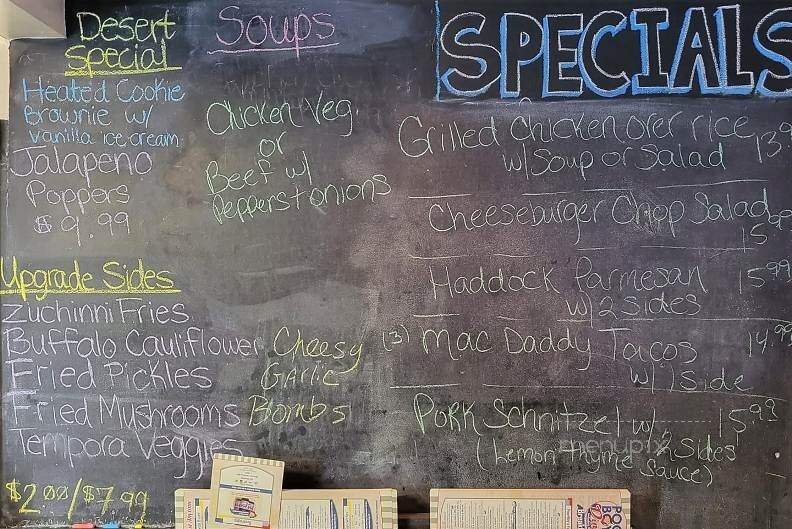 Desert
Special
Heated Cookie
Brownie w/
Vanilla ice cream
Jalapeno
Poppers
$9.99
Soups
Chicken Veg
or
Beef w/
Peppers + onions
Upgrade Sides
Zuchinni Fries
Buffalo Cauliflower
Fried Pickles
Fried Mushrooms
Tempora Veggies
$2.00/$7.99
Cheesy
Garlic
Bombs
SPECIALS
Grilled Chicken over rice 13.9
w/ Soup or Salad
Cheeseburger Chop Salad
15
Haddock Parmesan 15.99
w/ 2 Sides
(3) Mac Daddy Tacos 14.99
w/ 1 Side
Pork Schnitzel w/ 15.98
2 Sides
(Lemon thyme Sauce)
menupix